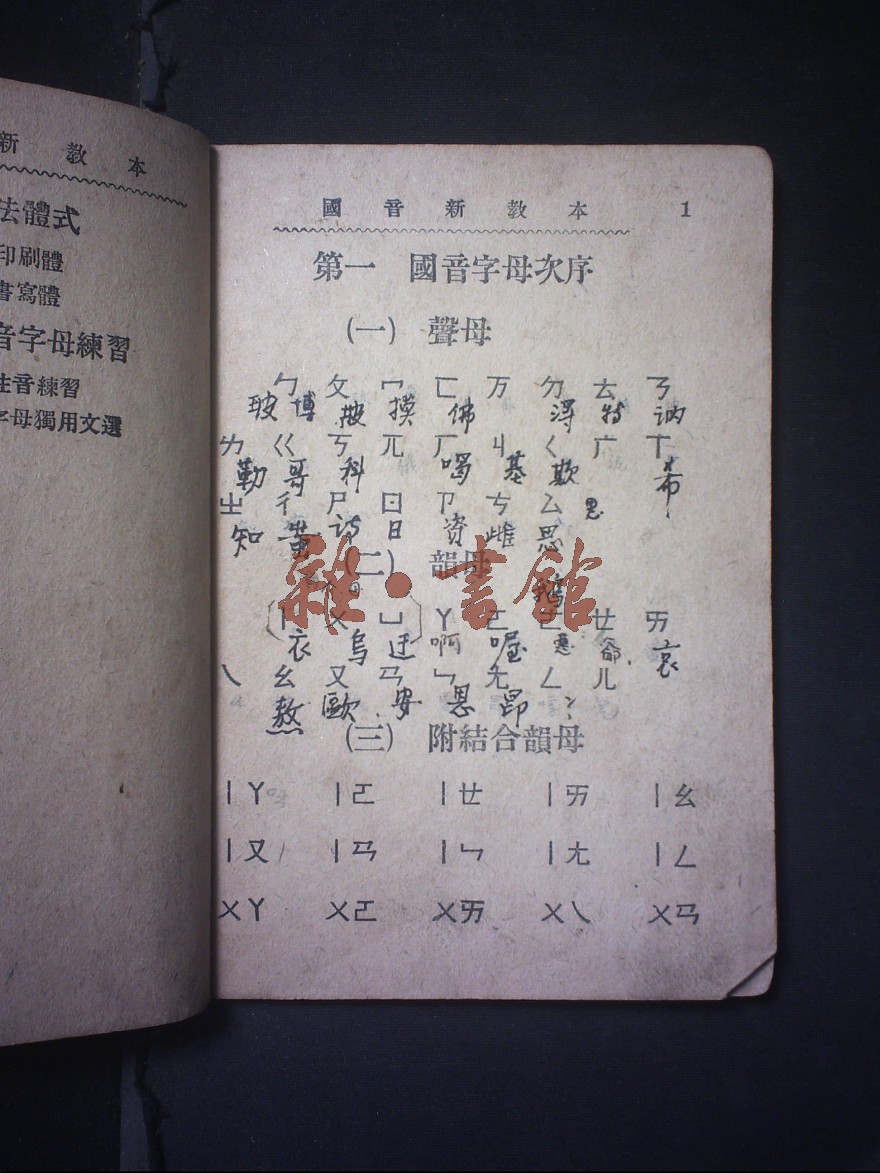 新教本
法體式
印刷體
書寫體
音字母練習
注音練習
字母獨用文選
國音新教本 1
第一 國音字母次序
(一) 聲母
ㄅ ㄆ ㄇ ㄈ ㄪ ㄉ ㄊ ㄋ
玻 博 披 摸 佛 得 特 訥
ㄌ ㄍ ㄎ ㄫ ㄏ ㄐ ㄑ ㄬ ㄒ
勒 哥 科 喝 基 欺 希
ㄓ ㄔ ㄕ ㄖ ㄗ ㄘ ㄙ 思
知 詩 日 资 雌 思
(二) 韻母
雜·書館
(ㄧ ㄨ ㄩ) ㄚ ㄛ ㄜ ㄝ ㄞ
衣 烏 迂 啊 喔 哀
ㄟ ㄠ ㄡ ㄢ ㄣ ㄤ ㄥ ㄦ
熬 歐 安 恩 昂
(三) 附結合韻母
ㄧㄚ ㄧㄛ ㄧㄝ ㄧㄞ ㄧㄠ
ㄧㄡ ㄧㄢ ㄧㄣ ㄧㄤ ㄧㄥ
ㄨㄚ ㄨㄛ ㄨㄞ ㄨㄟ ㄨㄢ